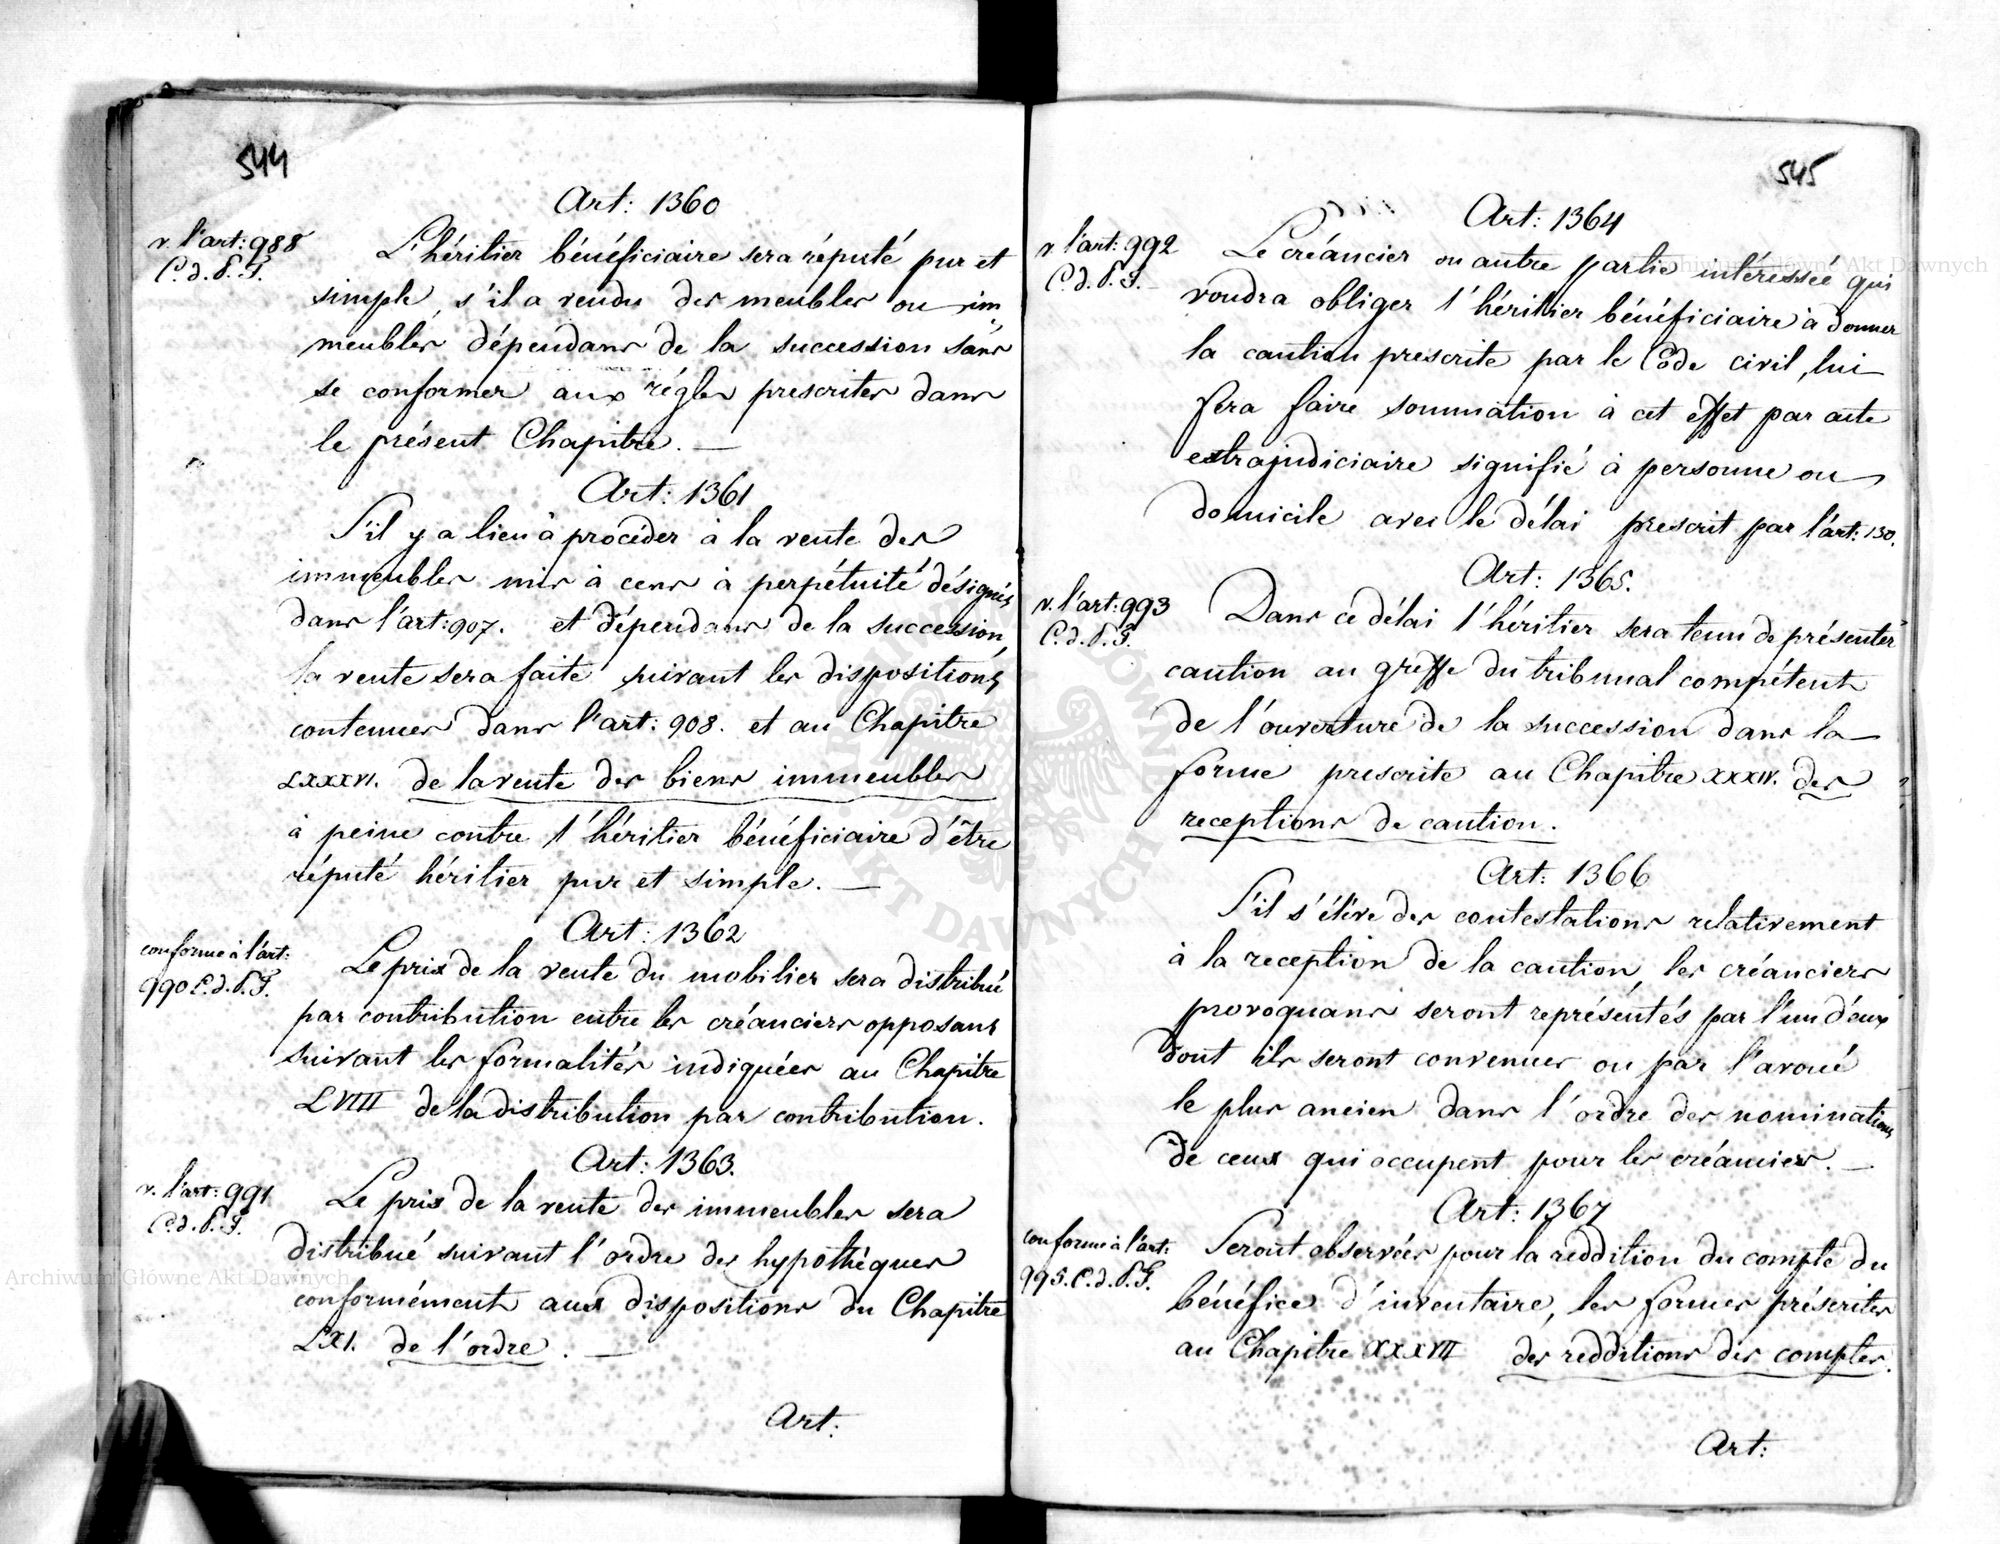 544
Art: 1360
v. l'art: 988
C. d. P. F.
L'héritier bénéficiaire sera réputé pur et
simple, s'il a vendu des meubles ou im
meubles dépendans de la succession sans
se conformer aux régles prescrites dans
le présent Chapitre. —
Art: 1361
S'il y a lieu à procéder à la vente des
immeubles mis à cens à perpétuité désignés
dans l'art: 907. et dépendans de la succession,
la vente sera faite suivant les dispositions
contenues dans l'art: 908. et au Chapitre
LXXXVI. de la vente des biens immeubles
à peine contre l'héritier bénéficiaire d'être
réputé héritier pur et simple. —
Art: 1362
conforme à l'art:
990 C. d. P. F.
Le prix de la vente du mobilier sera distribué
par contribution entre les créanciers opposans
suivant les formalités indiquées au Chapitre
LVIII de la distribution par contribution.
Art: 1363.
v. l'art: 991
C. d. P. F.
Le prix de la vente des immeubles sera
distribué suivant l'ordre des hypothéques
conformément aux dispositions du Chapitre
LXI. de l'ordre. —
Art:
545
Art: 1364
v. l'art: 992
C. d. P. F.
Le créancier ou autre partie intéressée qui
voudra obliger l'héritier bénéficiaire à donner
la caution prescrite par le Code civil, lui
fera faire sommation à cet effet par acte
extrajudiciaire signifié à personne ou
domicile avec le délai prescrit par l'art: 130.
Art: 1365.
v. l'art: 993
C. d. P. F.
Dans ce délai l'héritier sera tenu de présenter
caution au greffe du tribunal compétent
de l'ouverture de la succession dans la
forme prescrite au Chapitre XXXIV. des
receptions de caution.
Art: 1366
S'il s'élève des contestations relativement
à la reception de la caution, les créanciers
provoquans seront représentés par l'un d'eux
dont ils seront convenues ou par l'avoué
le plus ancien dans l'ordre des nominations
de ceux qui occupent pour les créanciers. —
Art: 1367
conforme à l'art:
995. C. d. P. F.
Seront observées pour la reddition du compte du
bénéfice d'inventaire, les formes préscrites
au Chapitre XXXVII des redditions des comptes.
Art:
Archiwum Główne Akt Dawnych
Archiwum Główne Akt Dawnych